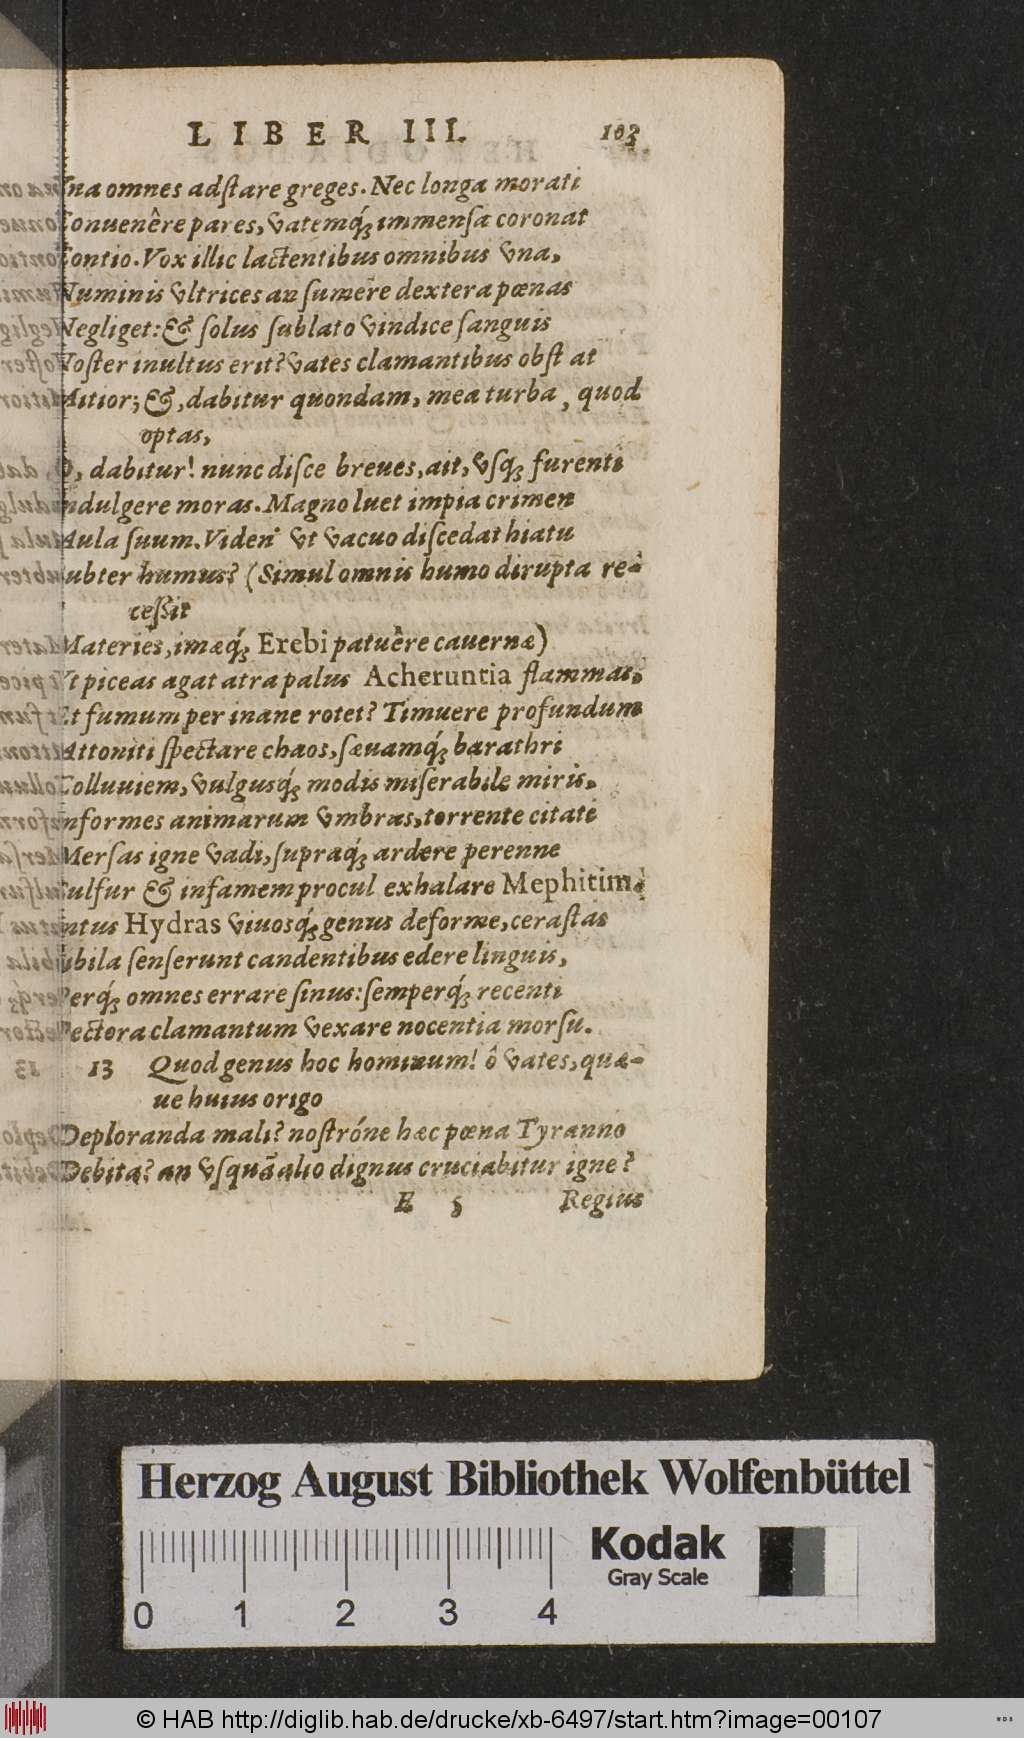 LIBER III.
103
Vna omnes adstare greges. Nec longa morati
Conuenêre pares, vatemq́; immensa coronat
Contio. Vox illic lactentibus omnibus vna,
Numinis vltrices an sumere dextera pœnas
Negliget: & solus sublato vindice sanguis
Noster inultus erit? vates clamantibus obstat
Mitior; &, dabitur quondam, mea turba, quod
optas,
O, dabitur! nunc disce breues, ait, vsq; furenti
Indulgere moras. Magno luet impia crimen
Aula suum. Viden' vt vacuo discedat hiatu
Subter humus? (Simul omnis humo dirupta re-
cessit
Materies, imæq́; Erebi patuêre cauernæ)
Vt piceas agat atra palus Acheruntia flammas,
Et fumum per inane rotet? Timuere profundum
Attoniti spectare chaos, sæuamq́; barathri
Colluuiem, vulgusq́; modis miserabile miris,
Informes animarum vmbras, torrente citati
Mersas igne vadi, supraq́; ardere perenne
Sulfur & infamem procul exhalare Mephitim.
Intus Hydras viuosq́; genus deforme, cerastas
Sibila senserunt candentibus edere linguis,
Perq́; omnes errare sinus: semperq́; recenti
Pectora clamantum vexare nocentia morsu.
13 Quod genus hoc hominum! ô vates, quæ-
ue huius origo
Deploranda mali? nostróne hæc pœna Tyranno
Debita? an vsquã alio dignus cruciabitur igne?
E 5 Regius
Herzog August Bibliothek Wolfenbüttel
Kodak
Gray Scale
0 1 2 3 4
© HAB http://diglib.hab.de/drucke/xb-6497/start.htm?image=00107